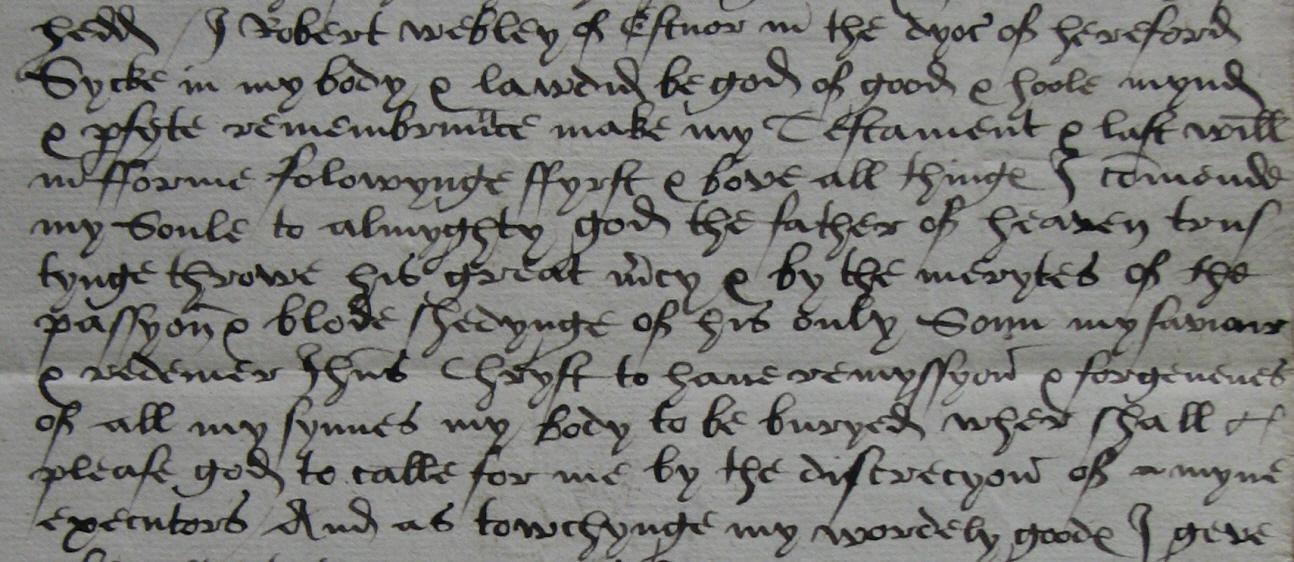 hedd / I Robert webley of Estnor in the dyoc of hereford
Sycke in my body & lawdid be god of good & hoole mynd
& pfyte remembrunce make my Testament & last will
in fforme folowynge ffyrst & bove all things I comende
my Soule to almyghty god the father of heaven trus
tynge throwe his great mcy & by the merytes of the
passyon & blode shedynge of his only Sonn my saviour
& redemer Jhus Chryst to have remyssyon & forgevenes
of all my synnes my body to be buryed wher shall
please god to calle for me by the discrecyon of myne
executors And as towchynge my wordely goods I geve